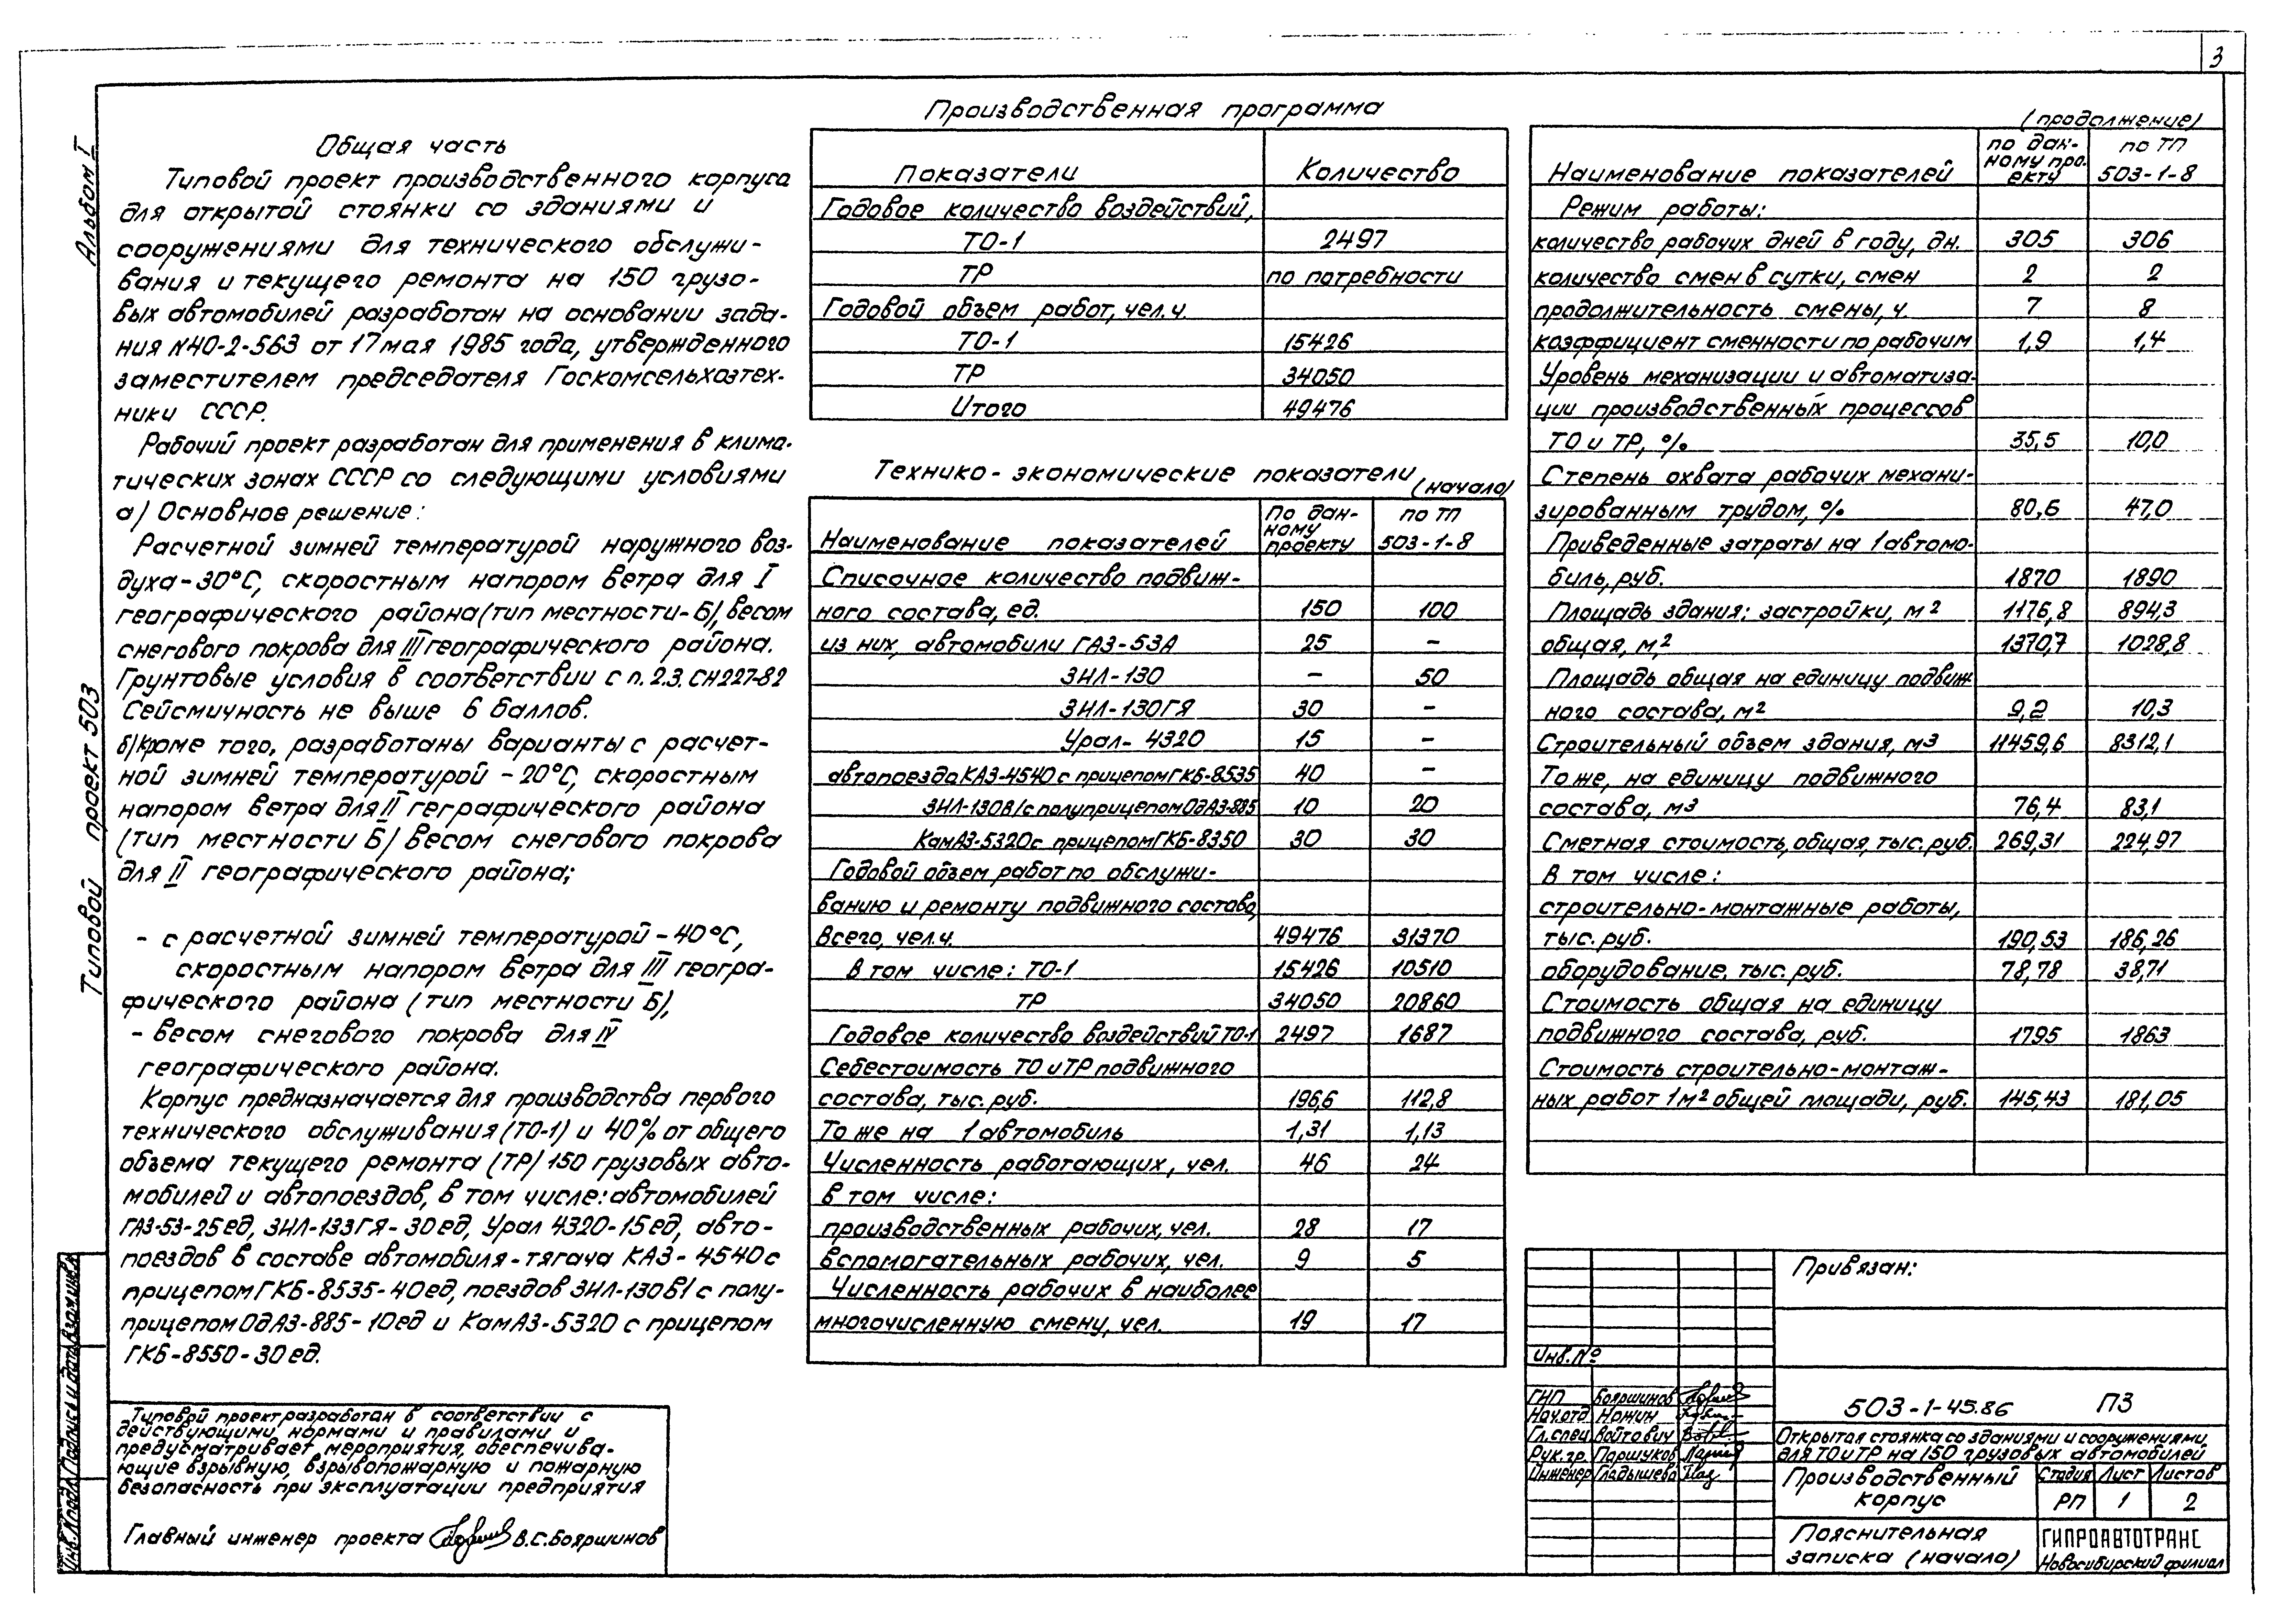 3
Альбом I
Типовой проект 503
Общая часть
Типовой проект производственного корпуса
для открытой стоянки со зданиями и
сооружениями для технического обслужи-
вания и текущего ремонта на 150 грузо-
вых автомобилей разработан на основании зада-
ния №40-2-563 от 17 мая 1985 года, утвержденного
заместителем председателя Госкомсельхозтех-
ники СССР.
Рабочий проект разработан для применения в клима-
тических зонах СССР со следующими условиями
а) Основное решение:
Расчетной зимней температурой наружного воз-
духа -30°С, скоростным напором ветра для I
географического района (тип местности-Б), весом
снегового покрова для III географического района.
Грунтовые условия в соответствии с п. 2.3. СН 227-82
Сейсмичность не выше 6 баллов.
б) Кроме того, разработаны варианты с расчет-
ной зимней температурой -20°С, скоростным
напором ветра для II геграфического района
(тип местности Б) весом снегового покрова
для II географического района;
- с расчетной зимней температурой -40°С,
скоростным напором ветра для III геогра-
фического района (тип местности Б),
- весом снегового покрова для IV
географического района.
Корпус предназначается для производства первого
технического обслуживания (ТО-1) и 40% от общего
объема текущего ремонта (ТР) 150 грузовых авто-
мобилей и автопоездов, в том числе: автомобилей
ГАЗ-53-25 ед, ЗИЛ-133ГЯ-30 ед, Урал 4320-15 ед, авто-
поездов в составе автомобиля-тягача КАЗ-4540 с
прицепом ГКБ-8535-40 ед, поездов ЗИЛ-130В1 с полу-
прицепом ОдАЗ-885-10 ед и КамАЗ-5320 с прицепом
ГКБ-8550-30 ед.
Типовой проект разработан в соответствии с
действующими нормами и правилами и
предусматривает мероприятия, обеспечива-
ющие взрывную, взрывопожарную и пожарную
безопасность при эксплуатации предприятия
Главный инженер проекта В.С. Бояршинов
Инв.№подл. Подпись и дата Взам.инв.№
Производственная программа
Показатели Количество
Годовое количество воздействий,
ТО-1 2497
ТР по потребности
Годовой объем работ, чел.ч.
ТО-1 15426
ТР 34050
Итого 49476
Технико-экономические показатели (начало)
Наименование показателей По дан-ному проекту по ТП 503-1-8
Списочное количество подвиж-
ного состава, ед. 150 100
из них, автомобили ГАЗ-53А 25 –
ЗИЛ-130 – 50
ЗИЛ-130ГЯ 30 –
Урал-4320 15 –
автопоезда КАЗ-4540 с прицепом ГКБ-8535 40 –
ЗИЛ-130В1 с полуприцепом ОдАЗ-885 10 20
КамАЗ-5320 с прицепом ГКБ-8350 30 30
Годовой объем работ по обслужи-
ванию и ремонту подвижного состава,
всего, чел.ч. 49476 31370
В том числе: ТО-1 15426 10510
ТР 34050 20860
Годовое количество воздействий ТО-1 2497 1687
Себестоимость ТО и ТР подвижного
состава, тыс. руб. 196,6 112,8
То же на 1 автомобиль 1,31 1,13
Численность работающих, чел. 46 24
в том числе:
производственных рабочих, чел. 28 17
вспомогательных рабочих, чел. 9 5
Численность рабочих в наиболее
многочисленную смену, чел. 19 17
(продолжение)
Наименование показателей по дан-ному про-екту по ТП 503-1-8
Режим работы:
количество рабочих дней в году, дн. 305 306
количество смен в сутки, смен 2 2
продолжительность смены, ч. 7 8
коэффициент сменности по рабочим 1,9 1,4
Уровень механизации и автоматиза-
ции производственных процессов
ТО и ТР, % 35,5 10,0
Степень охвата рабочих механи-
зированным трудом, % 80,6 47,0
Приведенные затраты на 1 автомо-
биль, руб. 1870 1890
Площадь здания: застройки, м2 1176,8 894,3
общая, м2 1370,7 1028,8
Площадь общая на единицу подвиж
ного состава, м2 9,2 10,3
Строительный объем здания, м3 11459,6 8312,1
То же, на единицу подвижного
состава, м3 76,4 83,1
Сметная стоимость, общая, тыс. руб. 269,31 224,97
В том числе:
строительно-монтажные работы,
тыс. руб. 190,53 186,26
оборудование, тыс. руб. 78,78 38,71
Стоимость общая на единицу
подвижного состава, руб. 1795 1863
Стоимость строительно-монтаж-
ных работ 1м2 общей площади, руб. 145,43 181,05
Привязан:
Инв. №
ГИП Бояршинов
Нач.отд Ножин
Гл.спец Войтович
Рук.гр. Паршуков
Инженер Гладышева
503-1-45.86 ПЗ
Открытая стоянка со зданиями и сооружениями
для ТО и ТР на 150 грузовых автомобилей
Производственный корпус
Стадия Лист Листов
РП 1 2
Пояснительная записка (начало)
ГИПРОАВТОТРАНС
Новосибирский филиал